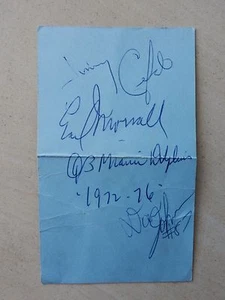 Jimmy Cefalo
Earl Morrall
QB Miami Dolphins
"1972-76"